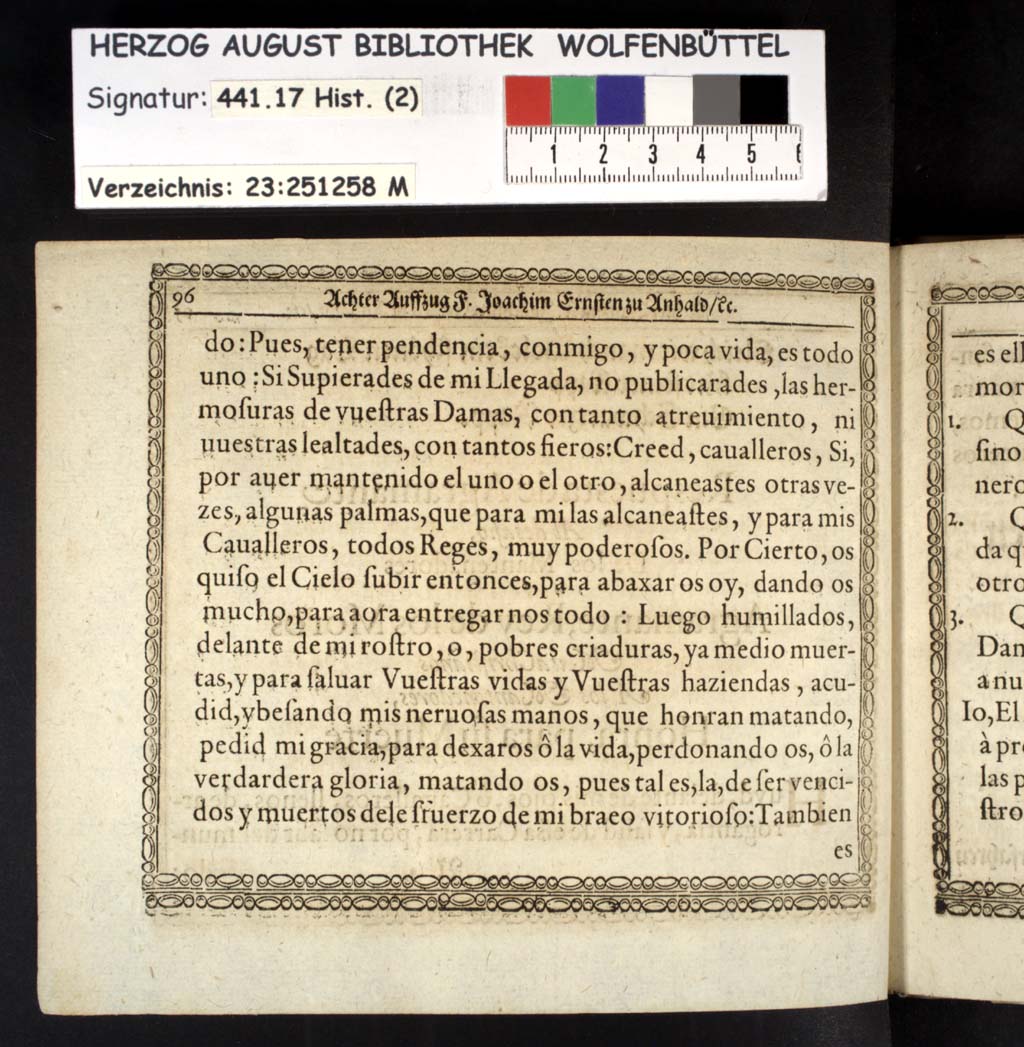 HERZOG AUGUST BIBLIOTHEK WOLFENBÜTTEL
Signatur: 441.17 Hist. (2)
1 2 3 4 5 6
Verzeichnis: 23:251258 M
96 Achter Auffzug F. Joachim Ernsten zu Anhald/ꝛc.
do: Pues, tener pendencia, conmigo, y poca vida, es todo
uno : Si Supierades de mi Llegada, no publicarades ,las her-
moſuras de vueſtras Damas, con tanto atreuimiento, ni
uuestras lealtades, con tantos fieros: Creed, caualleros, Si,
por auer mantenido el uno o el otro, alcaneastes otras ve-
zes, algunas palmas, que para mi las alcaneaſtes, y para mis
Caualleros, todos Reges, muy poderoſos. Por Cierto, os
quiſo el Cielo ſubir entonces, para abaxar os oy, dando os
mucho, para aora entregar nos todo : Luego humillados,
delante de mi roſtro, o, pobres criaduras, ya medio muer-
tas, y para ſaluar Vueſtras vidas y Vueſtras haziendas, acu-
did, ybeſando mis neruoſas manos, que honran matando,
pedid mi gracia, para dexaros ô la vida, perdonando os, ô la
verdardera gloria, matando os, pues tal es, la, de ſer venci-
dos y muertos dele ſruerzo de mi braeo vitorioſo: Tambien
es
es ell
mor
1. Q
ſino
nero
2. Q
da q
otro
3. Q
Dam
a nu
Io, El
à pr
las p
ſtro